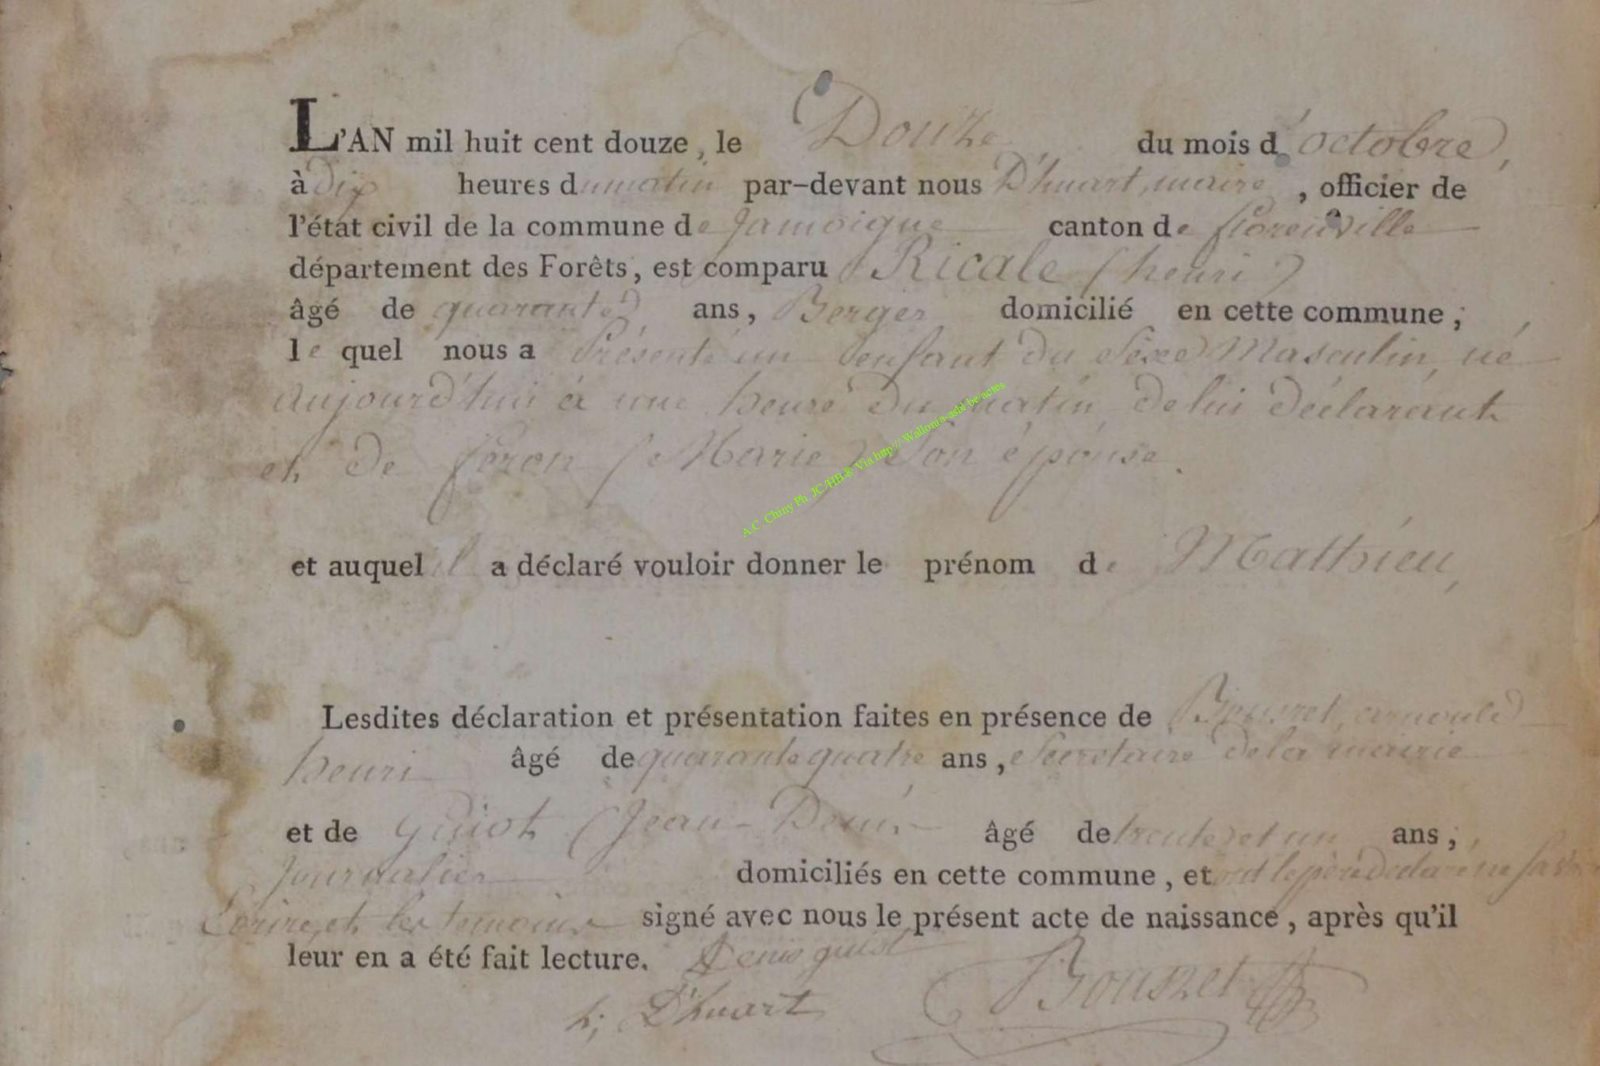 L'AN mil huit cent douze, le Douze du mois d'octobre,
à dix heures du matin par-devant nous D'huart, maire, officier de
l'état civil de la commune de Jamoigne canton de florenville
département des Forêts, est comparu Ricale (henri)
âgé de quarante ans, Berger domicilié en cette commune;
le quel nous a Présenté un enfant du Sexe Masculin, né
aujourd'hui à une heure du matin de lui déclarant
et de feron (Marie) Son épouse.
A.C. Chiny Ph JC/HB & Via http://
et auquel il a déclaré vouloir donner le prénom de Mathieu,
Lesdites déclaration et présentation faites en présence de
henri âgé de quarante quatre ans, Secrétaire de la mairie
et de Guiot (Jean-Denis âgé de trente et un ans;
Journalier domiciliés en cette commune, et ont le père déclaré ne savoir
Ecrire, et les temoins signé avec nous le présent acte de naissance, après qu'il
leur en a été fait lecture. Denis guiot
h; D'huart